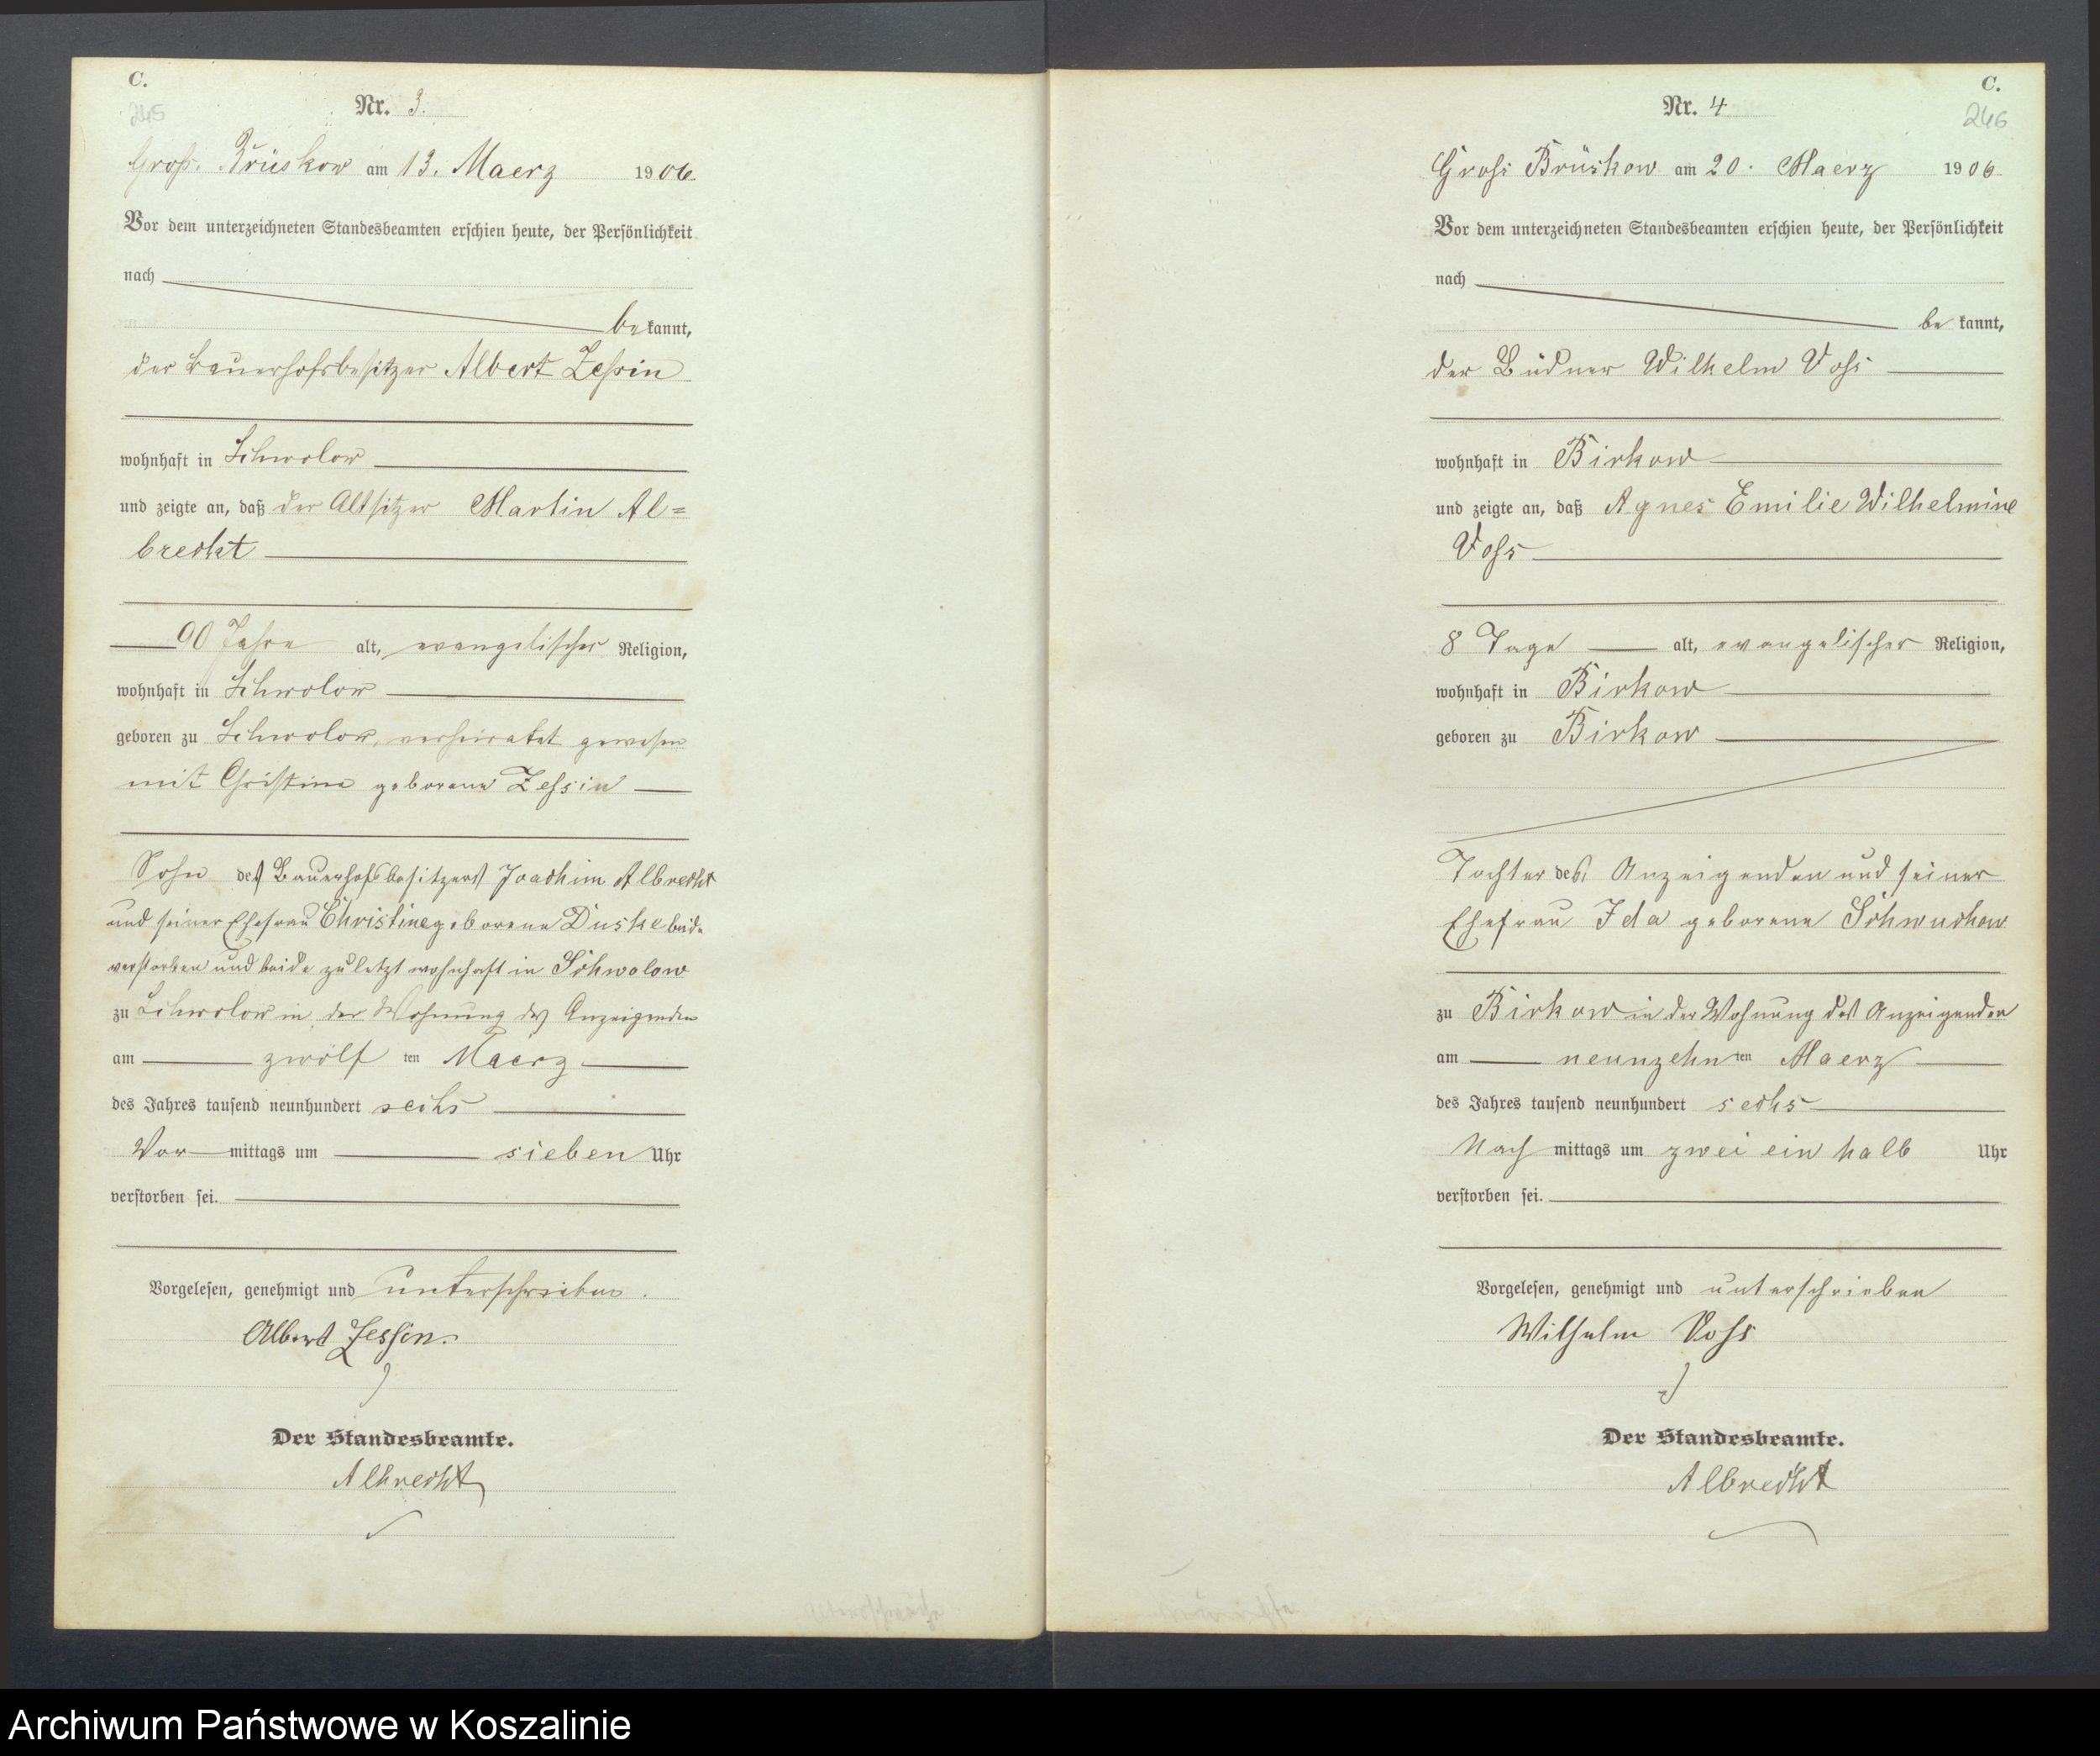 C.
245
Nr. 3.
Groß. Brüskow am 13. Maerz 1906.
Vor dem unterzeichneten Standesbeamten erschien heute, der Persönlichkeit
nach
bekannt,
der Bauerhofsbesitzer Albert Zessin
wohnhaft in Schwolow
und zeigte an, daß der Altsitzer Martin Al=
brecht
90 Jahre alt, evangelischer Religion,
wohnhaft in Schwolow
geboren zu Schwolow, verheiratet gewesen
mit Christine geborene Zessin
Sohn des Bauerhofsbesitzers Joachim Albrecht
und seiner Ehefrau Christine geborene Duske beide
verstorben und beide zuletzt wohnhaft in Schwolow
zu Schwolow in der Wohnung des Anzeigenden
am zwölf ten Maerz
des Jahres tausend neunhundert sechs
Vor mittags um sieben Uhr
verstorben sei.
Vorgelesen, genehmigt und unterschrieben.
Albert Zessin.
Der Standesbeamte.
Albrecht
Altersschwäche
C.
246
Nr. 4
Gross Brüskow am 20. Maerz 1906
Vor dem unterzeichneten Standesbeamten erschien heute, der Persönlichkeit
nach
be kannt,
der Büdner Wilhelm Voss
wohnhaft in Birkow
und zeigte an, daß Agnes Emilie Wilhelmine
Voss
8 Tage alt, evangelischer Religion,
wohnhaft in Birkow
geboren zu Birkow
Tochter des Anzeigenden und seiner
Ehefrau Ida geborene Schwuchow
zu Birkow in der Wohnung des Anzeigenden
am neunzehn ten Maerz
des Jahres tausend neunhundert sechs
Nach mittags um zwei ein halb Uhr
verstorben sei.
Vorgelesen, genehmigt und unterschrieben
Wilhelm Voss
Der Standesbeamte.
Albrecht
Archiwum Państwowe w Koszalinie